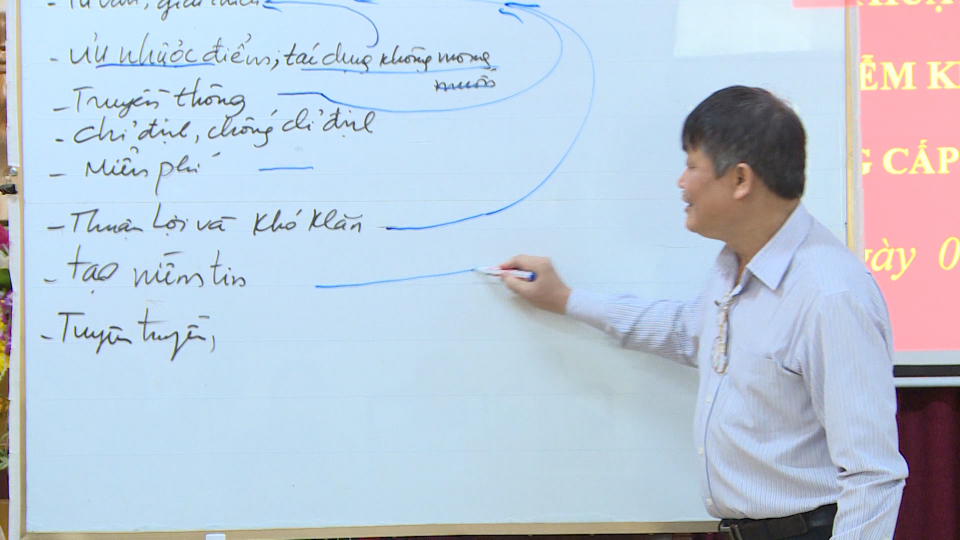 - Tư vấn, giải thích
- Ưu nhược điểm, tác dụng không mong
muốn
- Truyền thông
- Chỉ định, chống chỉ định
- Miễn phí
- Thuận lợi và khó khăn
- tạo niềm tin
- Tuyên truyền,
ỄM K
G CẤP
gày 0